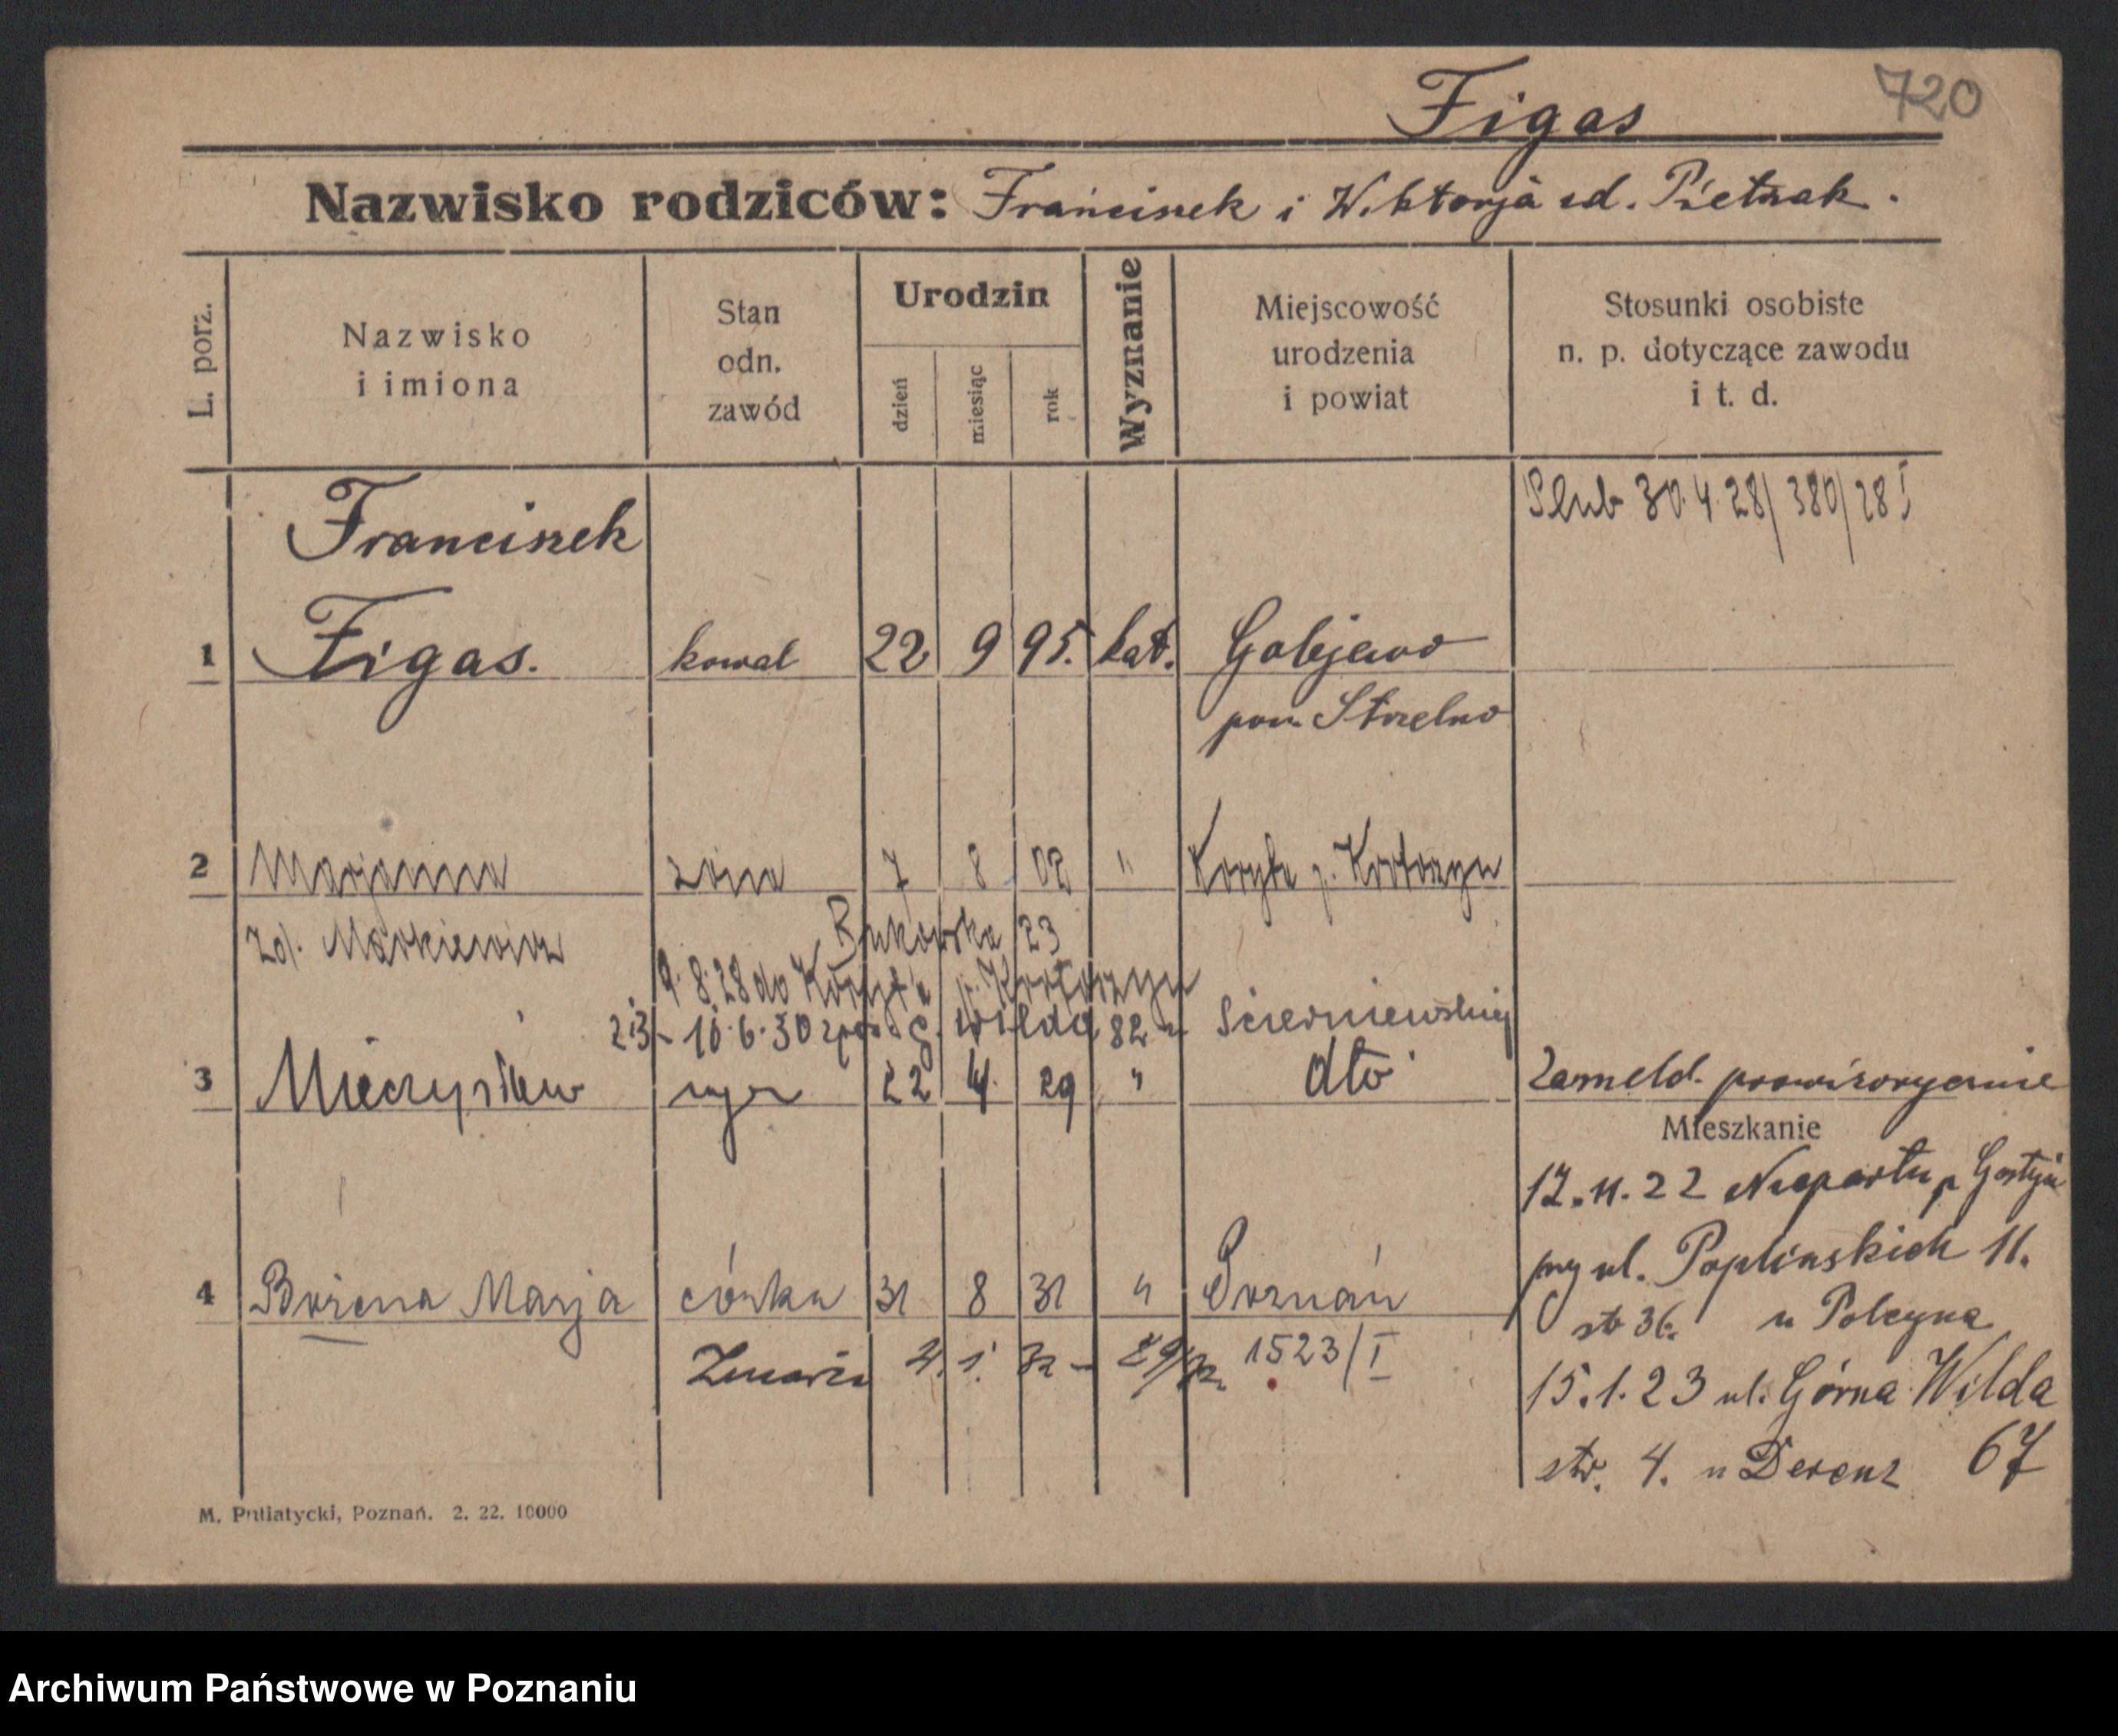 Figas 720
Nazwisko rodziców: Franciszek i Wiktorja zd. Pietrzak.
L. porz.
Nazwisko
i imiona
Stan
odn.
zawód
Urodzin
dzień
miesiąc
rok
Wyznanie
Miejscowość
urodzenia
i powiat
Stosunki osobiste
n. p. dotyczące zawodu
i t. d.
Ślub 30.4.28/380/28 I
Franciszek
1 Figas. kowal 22 9 95. kat. Golejewo
pow. Strzelno
2 Marjanna żona 7 8 02 " Koryta p. Krotoszyn
zd. Markiewicz Bukowska 23
9.8.28 do Koryta p. Krotoszyn
2i3 - 10.6.30 G. Wilda 82 u Scierniewskiej
3 Mieczysław syn 22 4. 29 " dto Zameld. prowizorycznie
Mieszkanie
17.11.22 Niepartu p Gostyń
przy ul. Poplinskich 11.
str 36. u Polcyna
4 Bożena Marja córka 31 8 31 " Poznań
Zmarła 4.1.32 - 29/32 1523/I
15.1.23 ul. Górna Wilda
str. 4. u Derenz 67
M. Putiatycki, Poznań. 2. 22. 10000
Archiwum Państwowe w Poznaniu